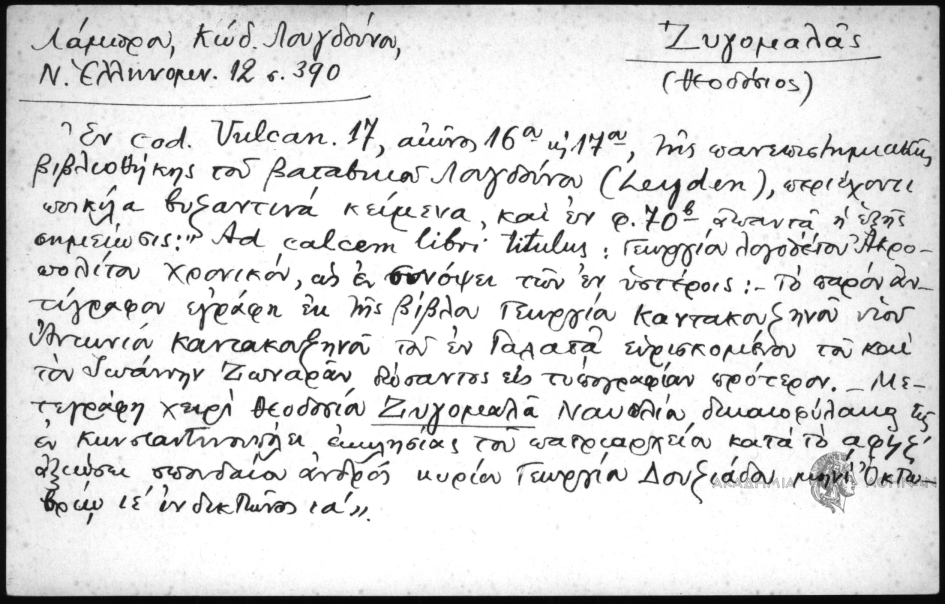 Λάμπρου, Κώδ. Λουγδούνου,
Ζυγομαλᾶς
Ν. Ἑλληνομν. 12 σ. 390
(Θεοδόσιος)
Ἐν cod. Vulcan. 17, αἰῶνος 16ου κ 17ου, τῆς πανεπιστημιακῆς
βιβλιοθήκης τοῦ βαταβικοῦ Λουγδούνου (Leyden), περιέχοντι
ποικίλα βυζαντινά κείμενα, καὶ ἐν φ. 70β ἀπαντᾶ ἡ ἑξῆς
σημείωσις: " Ad calcem libri titulus : Γεωργίου λογοθέτου Ἀκρο-
πολίτου χρονικόν, ὡς ἐν συνόψει τῶν ἐν ὑστέροις :- Τὸ παρὸν ἀν-
τίγραφον ἐγράφη ἐκ τῆς βίβλου Γεωργίου Καντακουζηνοῦ υἱοῦ
Ἀντωνίου Καντακουζηνοῦ τοῦ ἐν Γαλατᾶ εὑρισκομένου τοῦ καὶ
τὸν Ἰωάννην Ζωναρᾶν δώσαντος εἰς τυπογραφίαν πρότερον. – Με-
τεγράφη χειρὶ Θεοδοσίου Ζυγομαλᾶ Ναυπλίου δικαιοφύλακος τῆς
ἐν Κωνσταντινουπόλει ἐκκλησίας τοῦ πατριαρχείου κατὰ τὸ αφξζ΄
ἀξιώσει σπουδαίου ἀνδρός κυρίου Γεωργίου Δουξιάδου μηνὶ Ὀκτω-
βρίῳ ιε΄ ἰνδικτιῶνος ια΄».
ΑΚΑΔΗΜΙΑ